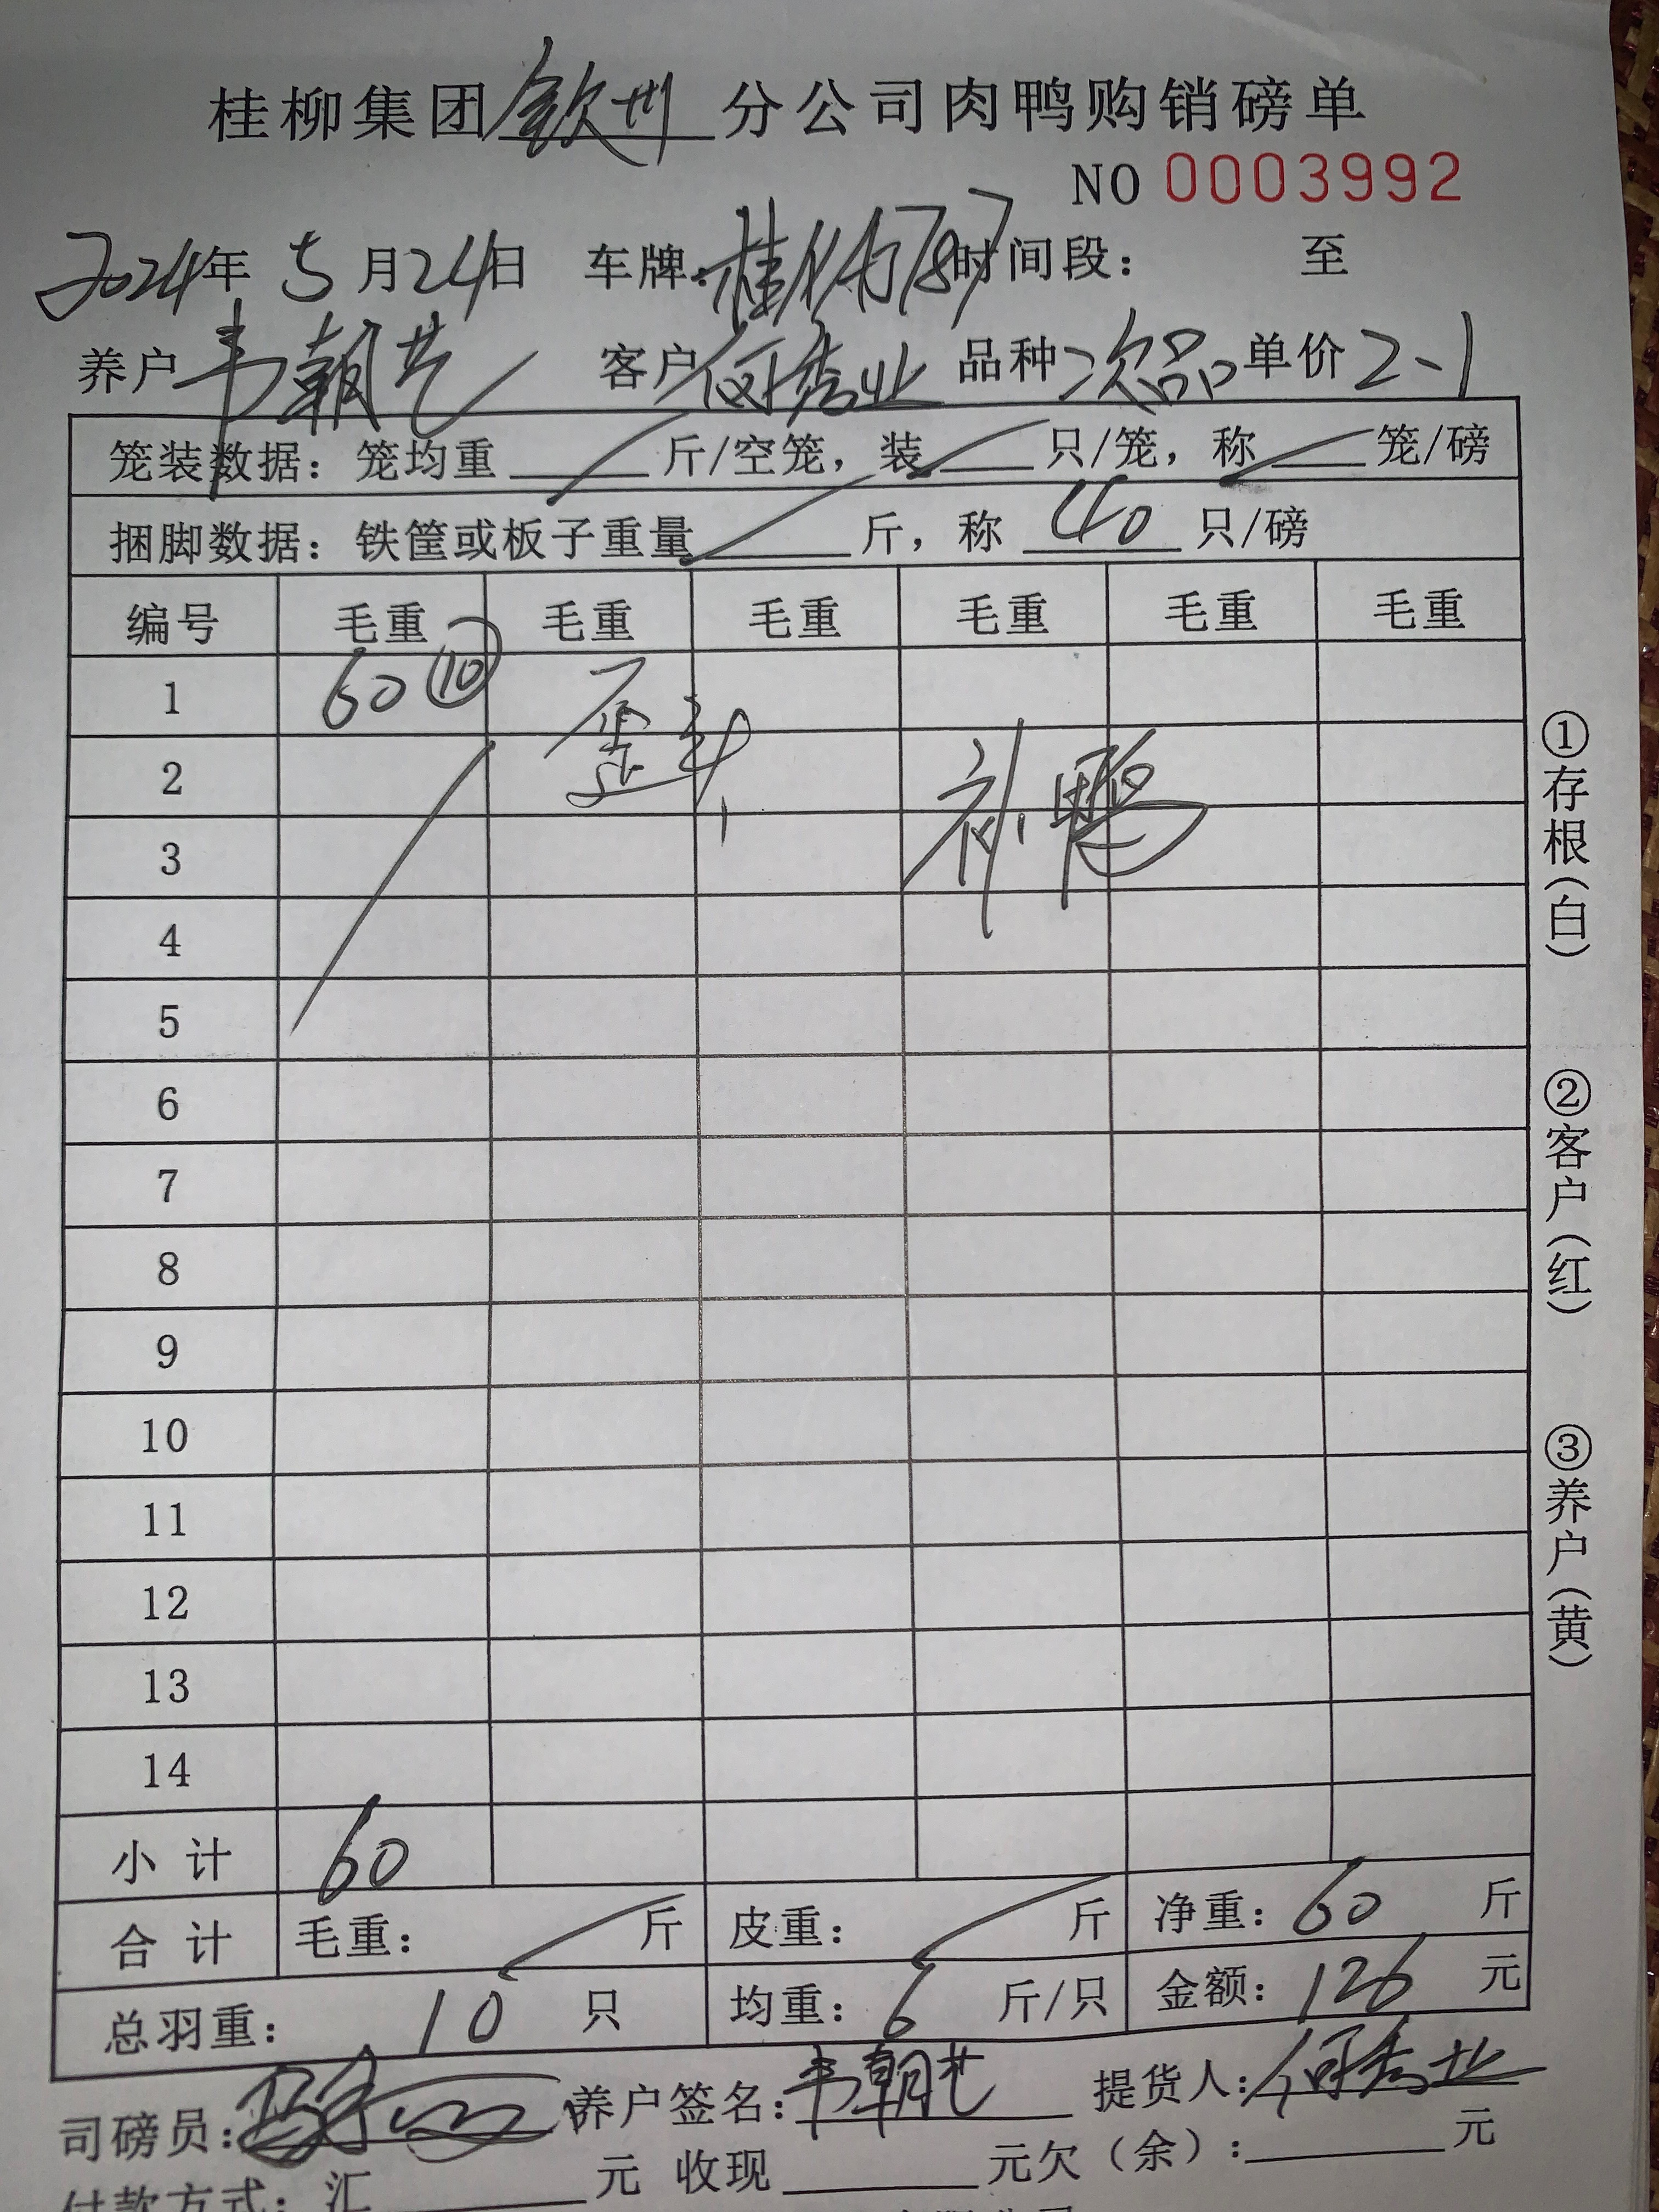 桂柳集团钦州分公司肉鸭购销磅单
NO 0003992
2024年 5月24日 车牌: 桂 787 时间段: 至
养户 韦朝艺 客户 何 业 品种 次品 单价 2.1
笼装数据: 笼均重 斤/空笼, 装 只/笼, 称 笼/磅
捆脚数据: 铁筐或板子重量 斤, 称 40 只/磅
编号 毛重 毛重 毛重 毛重 毛重 毛重
1 60 ⑩ 歪
2 补鸭
3
4
5
6
7
8
9
10
11
12
13
14
小 计 60
合 计 毛重: 斤 皮重: 斤 净重: 60 斤
总羽重: 10 只 均重: 6 斤/只 金额: 126 元
司磅员: 养户签名: 韦朝艺 提货人: 何 业
付款方式: 汇 元 收现 元欠(余): 元
①存根(白)
②客户(红)
③养户(黄)